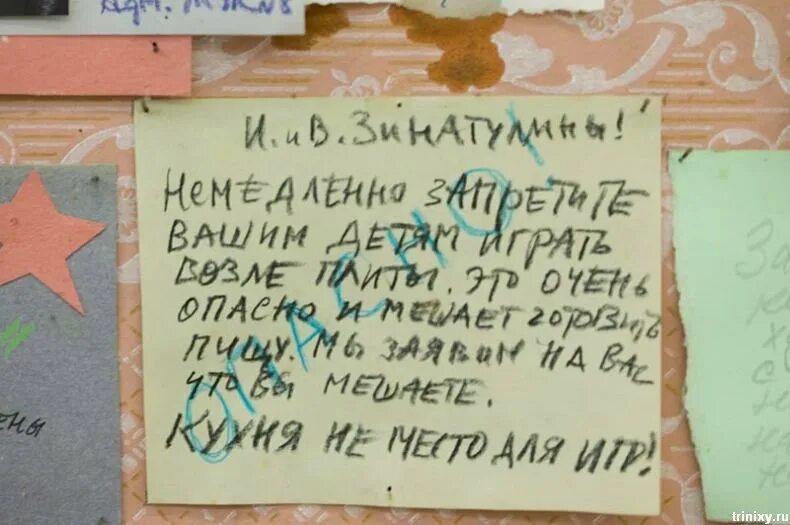 И. и В. Зинатулины!
Немедленно запретите
вашим детям играть
возле плиты. Это очень
опасно и мешает готовить
пищу. Мы заявим на вас
что вы мешаете.
Кухня не место для игр!
ОПАСНО!
trinixy.ru